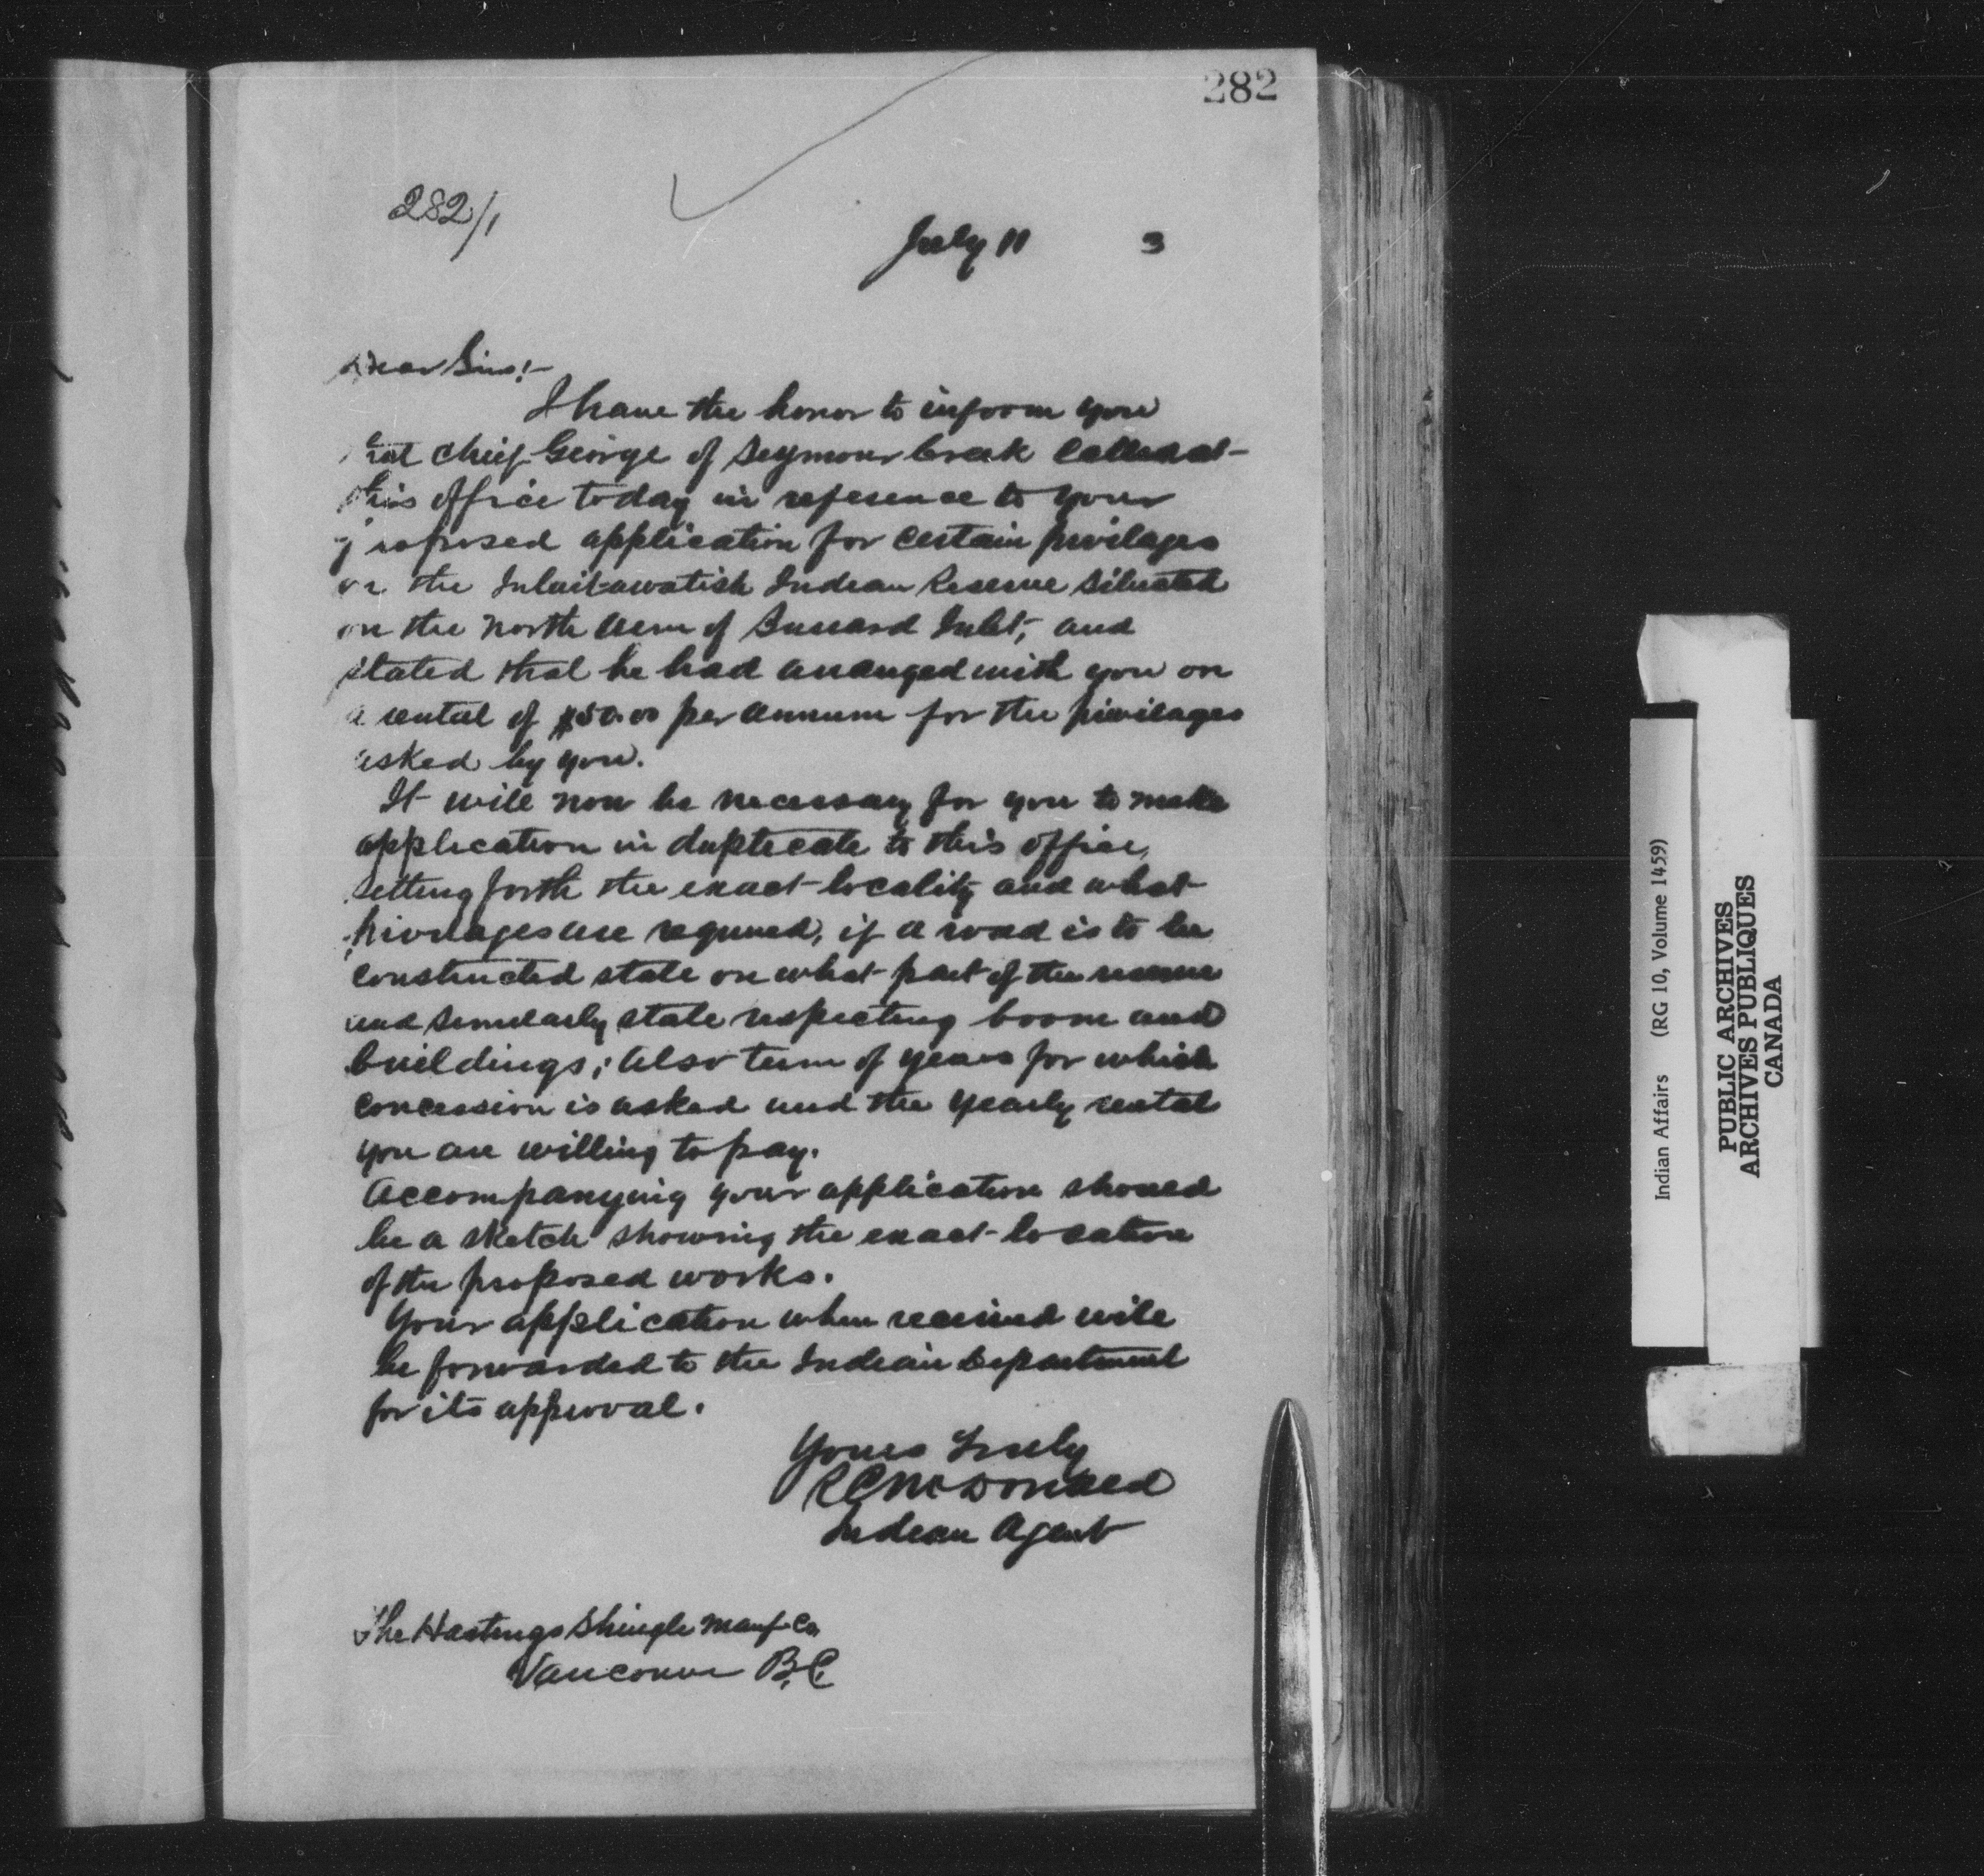 282
282/1
July 11 3
Dear Sirs!-
I have the honor to inform you
that Chief George of Seymour Creek Called at
this office today in reference to your
proposed application for certain privilages
on the Indian Reserve situated
on the North Arm of Burrard Inlet, and
stated that he had arranged with you on
a rental of $50.00 per annum for the privilages
asked by you.
It will now be necessary for you to make
application in duplicate to this office,
setting forth the exact locality and what
privilages are required, if a road is to be
constructed state on what part of the reserve
and similarly state respecting boom and
buildings; Also term of years for which
concession is asked and the yearly rental
you are willing to pay.
Accompanying your application should
be a sketch showing the exact location
of the proposed works.
Your application when received will
be forwarded to the Indian Department
for its approval.
Yours Truly
R C McDonald
Indian Agent
The Hastings Shingle Manf Co.
Vancouver B.C.
Indian Affairs (RG 10, Volume 1459)
PUBLIC ARCHIVES
ARCHIVES PUBLIQUES
CANADA